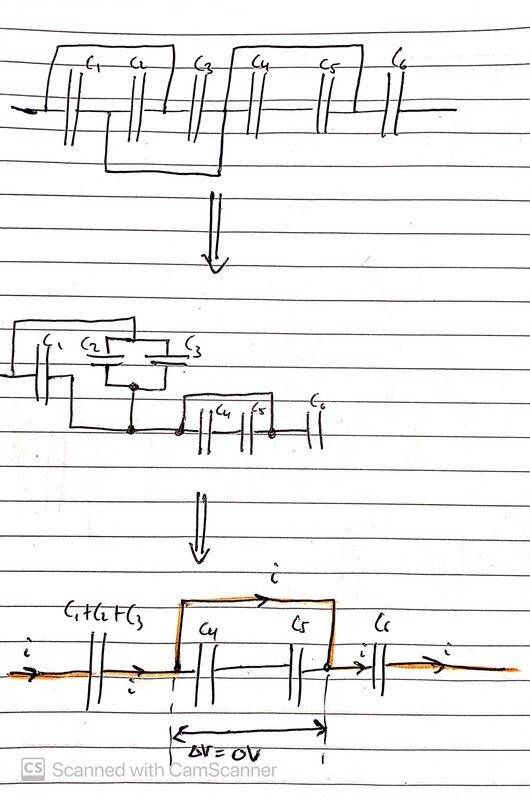 C1 C2 C3 C4 C5 C6
C1 C2 C3
C4 C5 C6
i
C1+C2+C3 C4 C5 C6
i i i i
ΔV = 0V
CS Scanned with CamScanner